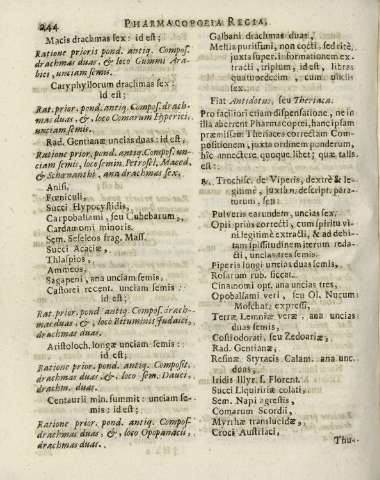 244 PHARMACOPOEIA REGIA,
Macis drachmas sex : id est;
Ratione prioris pond. antiq. Compos.
drachmas duas, &, loco Gummi Ara-
bici, unciam semis.
Caryphyllorum drachmas sex:
id est;
Rat. prior. pond. antiq. Compos. drach-
mas duas, &, loco Comarum Hyperici,
unciam semis.
Rad. Gentianæ uncias duas: id est;
Ratione prior. pond. antiq. Compos. un-
ciam semis, loco semin. Petrosel. Maced.
& Schœnanthi, ana drachmas sex,
Anisi,
Fœniculi,
Succi Hypocystidis,
Carpobalsami, seu Cubebarum,
Cardamomi minoris.
Sem. Seseleos frag. Mass.
Succi Acaciæ,
Thlaspios,
Ammeos,
Sagapeni, ana unciam semis,
Castorei recent. unciam semis:
id est;
Rat. prior. pond. antiq. Compos. drach-
mas duas, &, loco Bituminis Judaici,
drachmas duas.
Aristoloch. longæ unciam semis:
id est;
Ratione prior. pond. antiq. Composit.
drachmas duas, &, loco sem. Dauci,
drachm. duas.
Centaurii min. summit: unciam se-
mis: id est;
Ratione prior. pond. antiq. Compos.
drachmas duas, &, loco Opopanacis,
drachmas duas.
Galbani drachmas duas,
Mellis purissimi, non cocti, sed ritè,
juxta super. informationem ex-
tracti, triplum, id est, libras
quatuordecim, cum unciis
sex.
Fiat Antidotus, seu Theriaca.
Pro faciliori etiam dispensatione, ne in
illa aberrent Pharmacopœi, hanc ipsam
præmissam Theriaces correctam Com-
positionem, juxta ordinem ponderum,
hîc annectere quoque libet; quæ talis
est:
℞. Trochisc. de Viperis, dextrè & le-
gitimè, juxta descript. para-
torum, seu
Pulveris earundem, uncias sex.
Opii priùs correcti, cum spiritu vi-
ni legitimè extracti, & ad debi-
tam spissitudinem iterum reda-
cti, uncias tres semis.
Piperis longi uncias duas semis,
Rosarum rub. siccat.
Cinamomi opt. ana uncias tres,
Opobalsami veri, seu Ol. Nucum
Moschat. expressi,
Terræ Lemniæ veræ, ana uncias
duas semis,
Costi odorati, seu Zedoariæ,
Rad. Gentianæ,
Resinæ Styracis Calam. ana unc.
duas,
Iridis Illyr. s. Florent.
Succi Liquiritiæ colati,
Sem. Napi agrestis,
Comarum Scordii,
Myrrhæ translucidæ,
Croci Austriaci,
Thu-